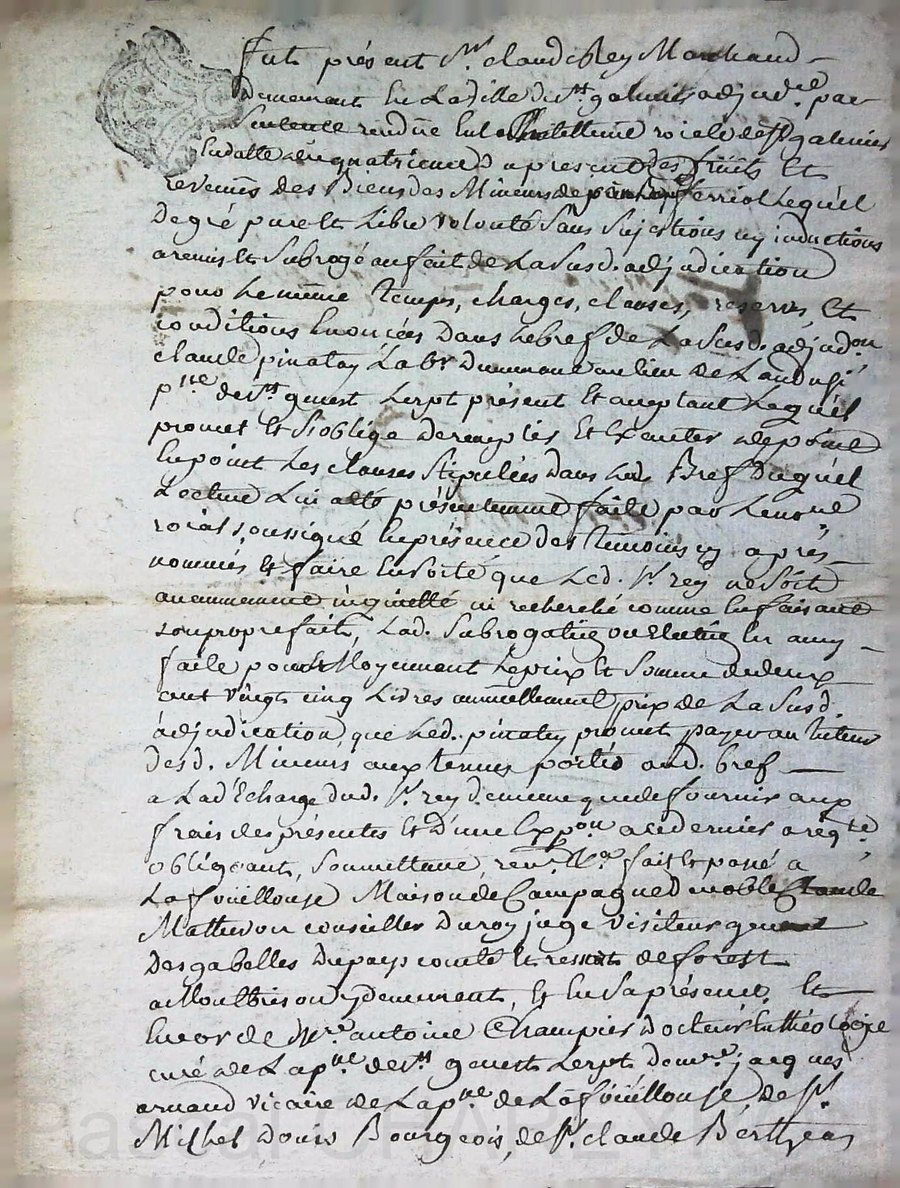 fut présent Sr. claude Rey Marchand
demeurant en La ville de St. galmier adjudre. par
Sentence rendue en la Chatellenie roiale de St galmier
En datte du quatrieme à present des fruits Et
revenus des Biens des Mineurs de ferriol Lequel
De gré pure Et Libre volonté Sans Sujestions ny inductions
a remis Et Subrogé au fait de La Susd. adjudication
pour Le même temps, charges, clauses, reserves Et
conditions Enoncées Dans Le bref de La Susd. adjudon.
claude pinatay Labr. Demeurant au lieu de
psse. de St. genest Lerpt présent Et acceptant Lequel
promet Et S'oblige de remplir Et Executer de point
En point Les clauses Stipulées Dans Led. Bref Duquel
Lecture Lui a été présentement faite par Le nore.
roial soussigné En présence des témoins cy après
nommés Et faire En sorte que Led. Sr. rey ne Soit
aucunement inquietté ni recherché comme En faisant
son propre fait, Lad. Subrogation ou Election En amy
faite pour Et Moyennant Le prix Et Somme de deux
cent vingt cinq Livres annuellement prix de La Susd.
adjudication que Led. pinatay promet payer au tuteur
desd. Mineurs aux termes portés aud. bref
a La d'Echarge dud. Sr. rey de meme que de fournir aux
frais des présentes Et D'une Exppon. a ce dernier a reqte.
obligeant, Soumettant, renc. &a. fait Et passé a
La foüillouse Maison de Campagne De noble Claude
Mathevon conseiller Du roy juge visiteur general
Des gabelles Du pays comté Et ressort de forest
a Montbrison y demeurant, Et En Sa présence, Et
Encor de Mre. antoine Champier Docteur En théologie
curé de La psse. de St. genest Lerpt de mre. jacques
arnaud vicaire de La psse. de La foüillouse, de Sr.
Michel Bourgeois, de Sr. claude Berthean